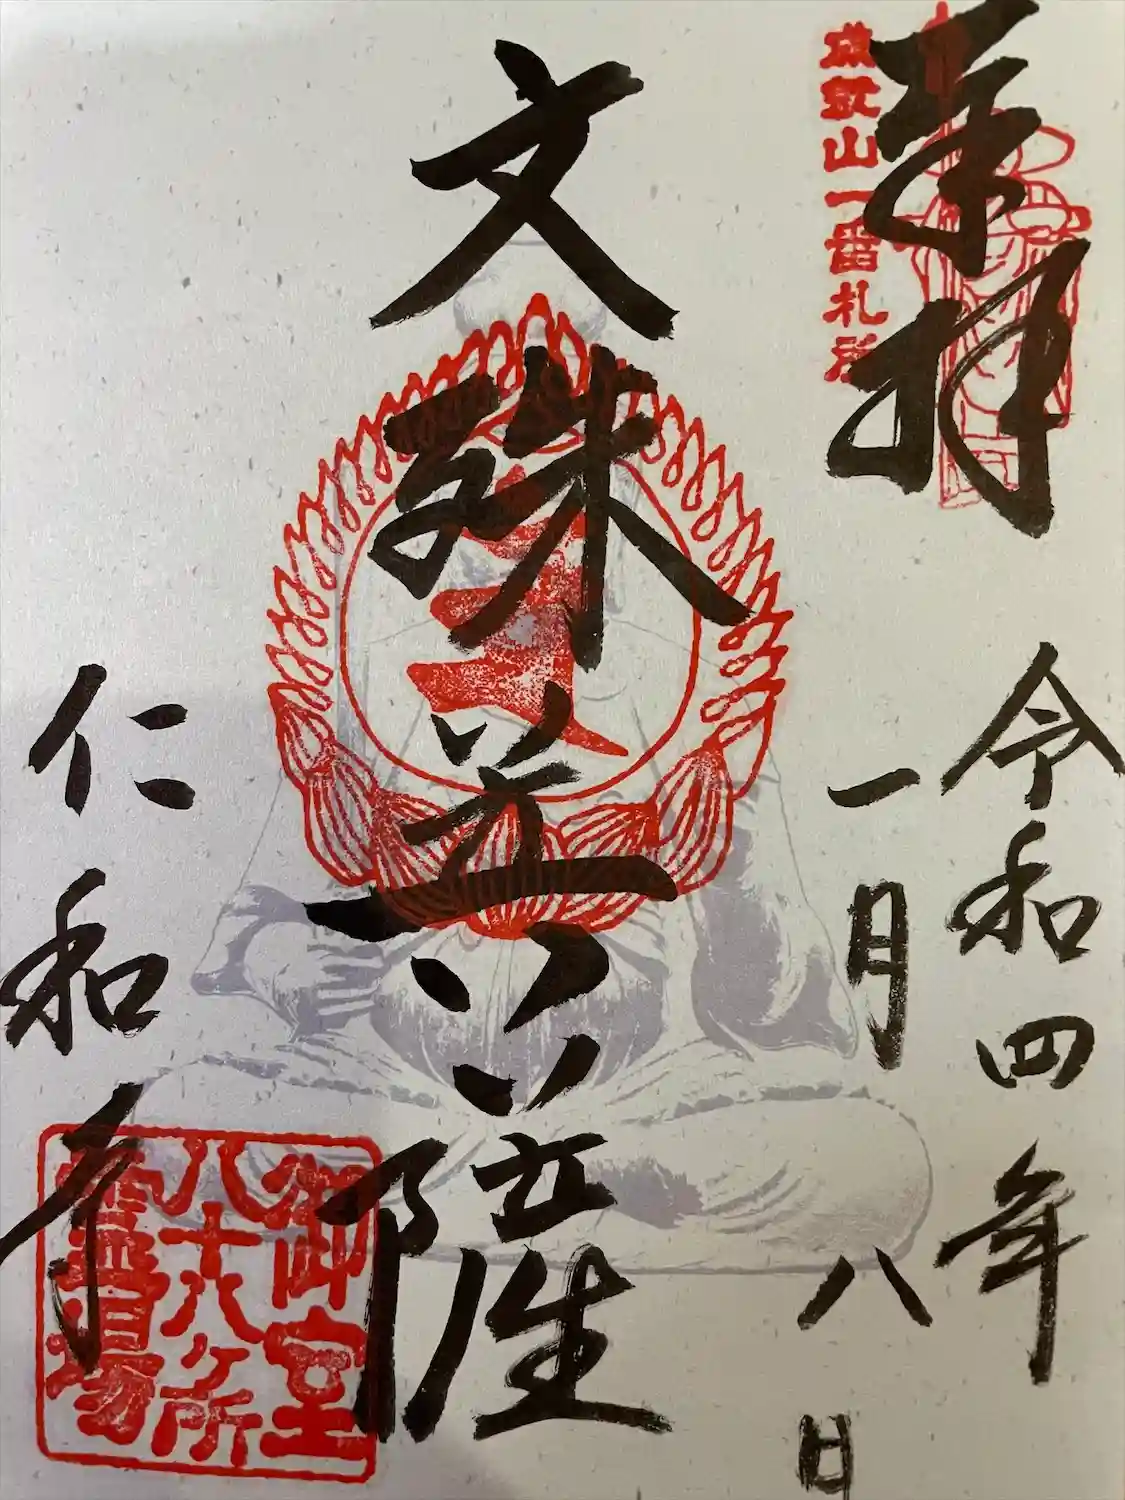 奉拝
成就山一番札所
令和四年
一月八日
文殊菩薩
仁和寺
御室
八十八ヶ所
霊場